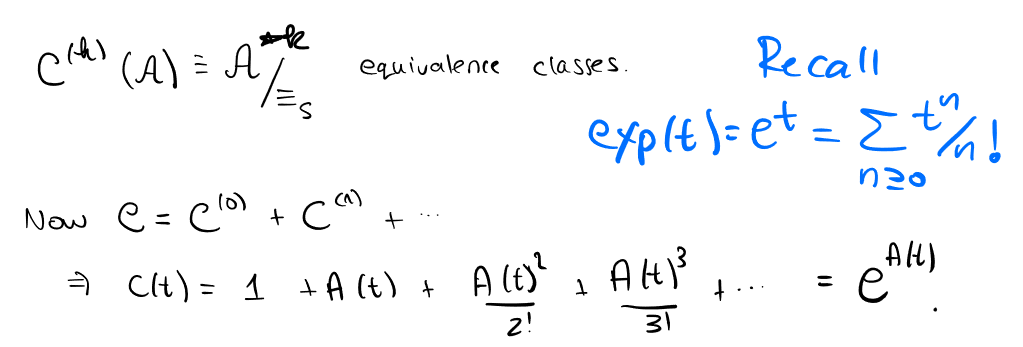 C^(k) (A) ≡ A^*k / ≡_S equivalence classes.
Recall
exp(t) = e^t = ∑_{n≥0} t^n/n!
Now C = C^(0) + C^(1) + ...
⇒ C(t) = 1 + A(t) + A(t)^2/2! + A(t)^3/3! + ... = e^A(t).